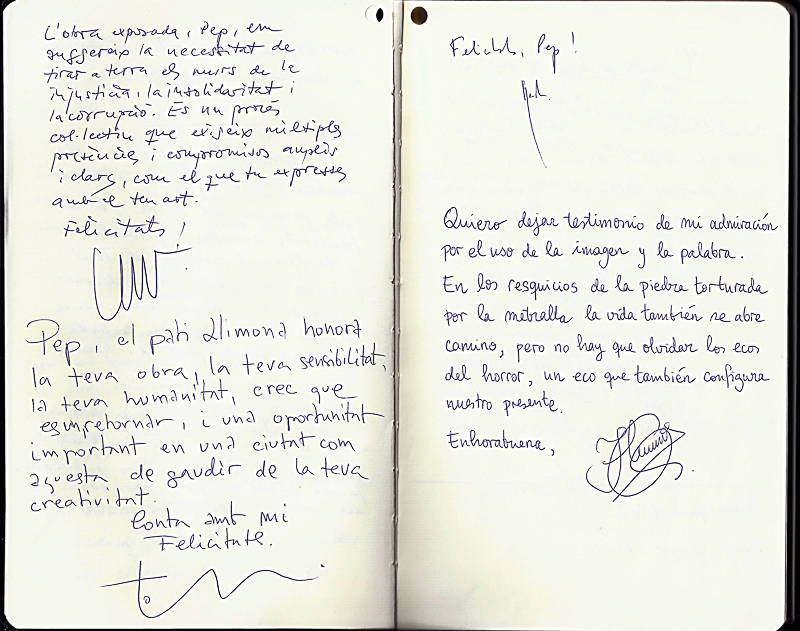 L'obra exposada, Pep, em
suggereix la necessitat de
tirar a terra els murs de la
injustícia, la insolidaritat i
la corrupció. És un procés
col·lectiu que exigeix múltiples
presències i compromisos amplis
i clars, com el que tu expresses
amb el teu art.
Felicitats!
Pep, el pati Llimona honora
la teva obra, la teva sensibilitat,
la teva humanitat, crec que
es un retornar, i una oportunitat
important en una ciutat com
aquesta de gaudir de la teva
creativitat.
Conta amb mi
Felicitats.
Felicitats, Pep!
Quiero dejar testimonio de mi admiración
por el uso de la imagen y la palabra.
En los resquicios de la piedra torturada
por la metralla la vida también se abre
camino, pero no hay que olvidar los ecos
del horror, un eco que también configura
nuestro presente.
Enhorabuena,